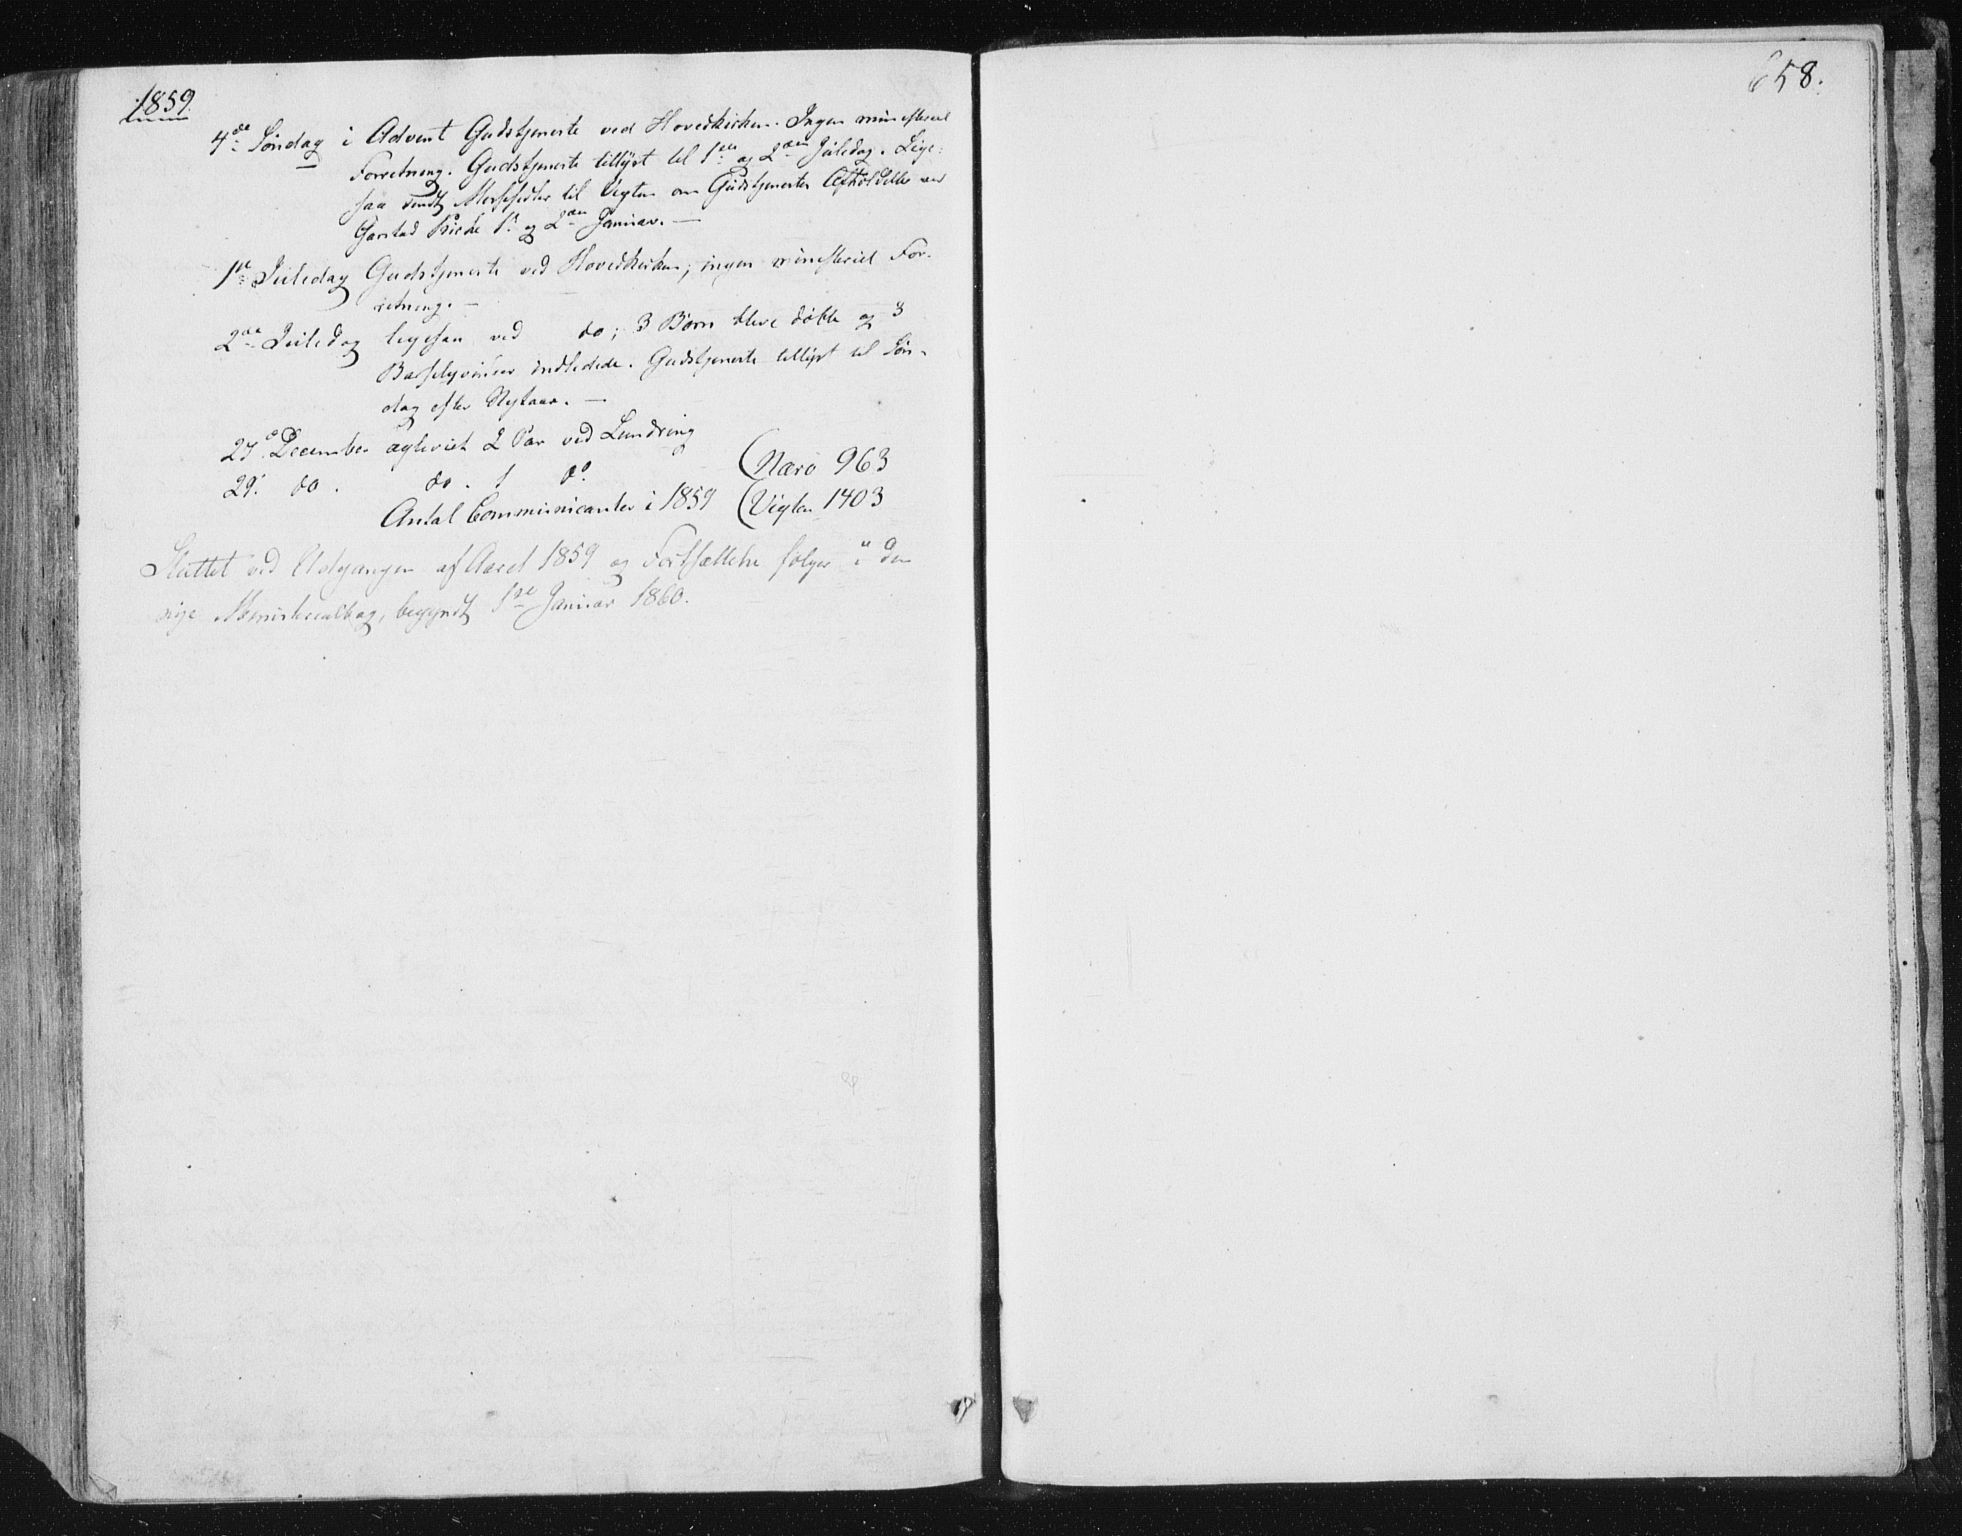 1859.
4de Søndag i Advent Gudstjeneste ved Hovedkirken. Ingen ministeriel
Forretning. Gudstjeneste tillyst til 1ste og 2den Juledag. Lige-
saa sendt Messeseddel til Vigten om Gudstjenestes Afholdelse ved
Garstad Kirke 1. og 2den Januar. —
1ste Juledag Gudstjeneste ved Hovedkirken; ingen ministeriel For-
retning. —
2den Juledag ligesaa ved do; 3 Børn bleve døbte og 3
Barselqvinder indledede. Gudstjeneste tillyst til Søn-
dag efter Nytaar. —
27. December ægteviet 2 Par ved
29. do. do. 1 do.
(Nærø 963
Antal Communicanter i 1859 (Vigten 1403
Sluttet ved Udgangen af Aaret 1859 og Fortsættelse følger i den
nye Ministerialbog, begyndt 1ste Januar 1860.
658.